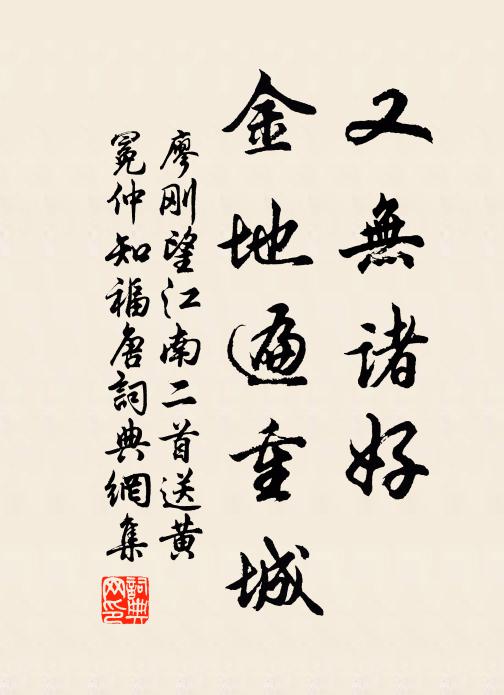 又無諸好
金地遍重城
廖刚望江南二首送黄
冕仲知福唐詞典網集
詞典網印